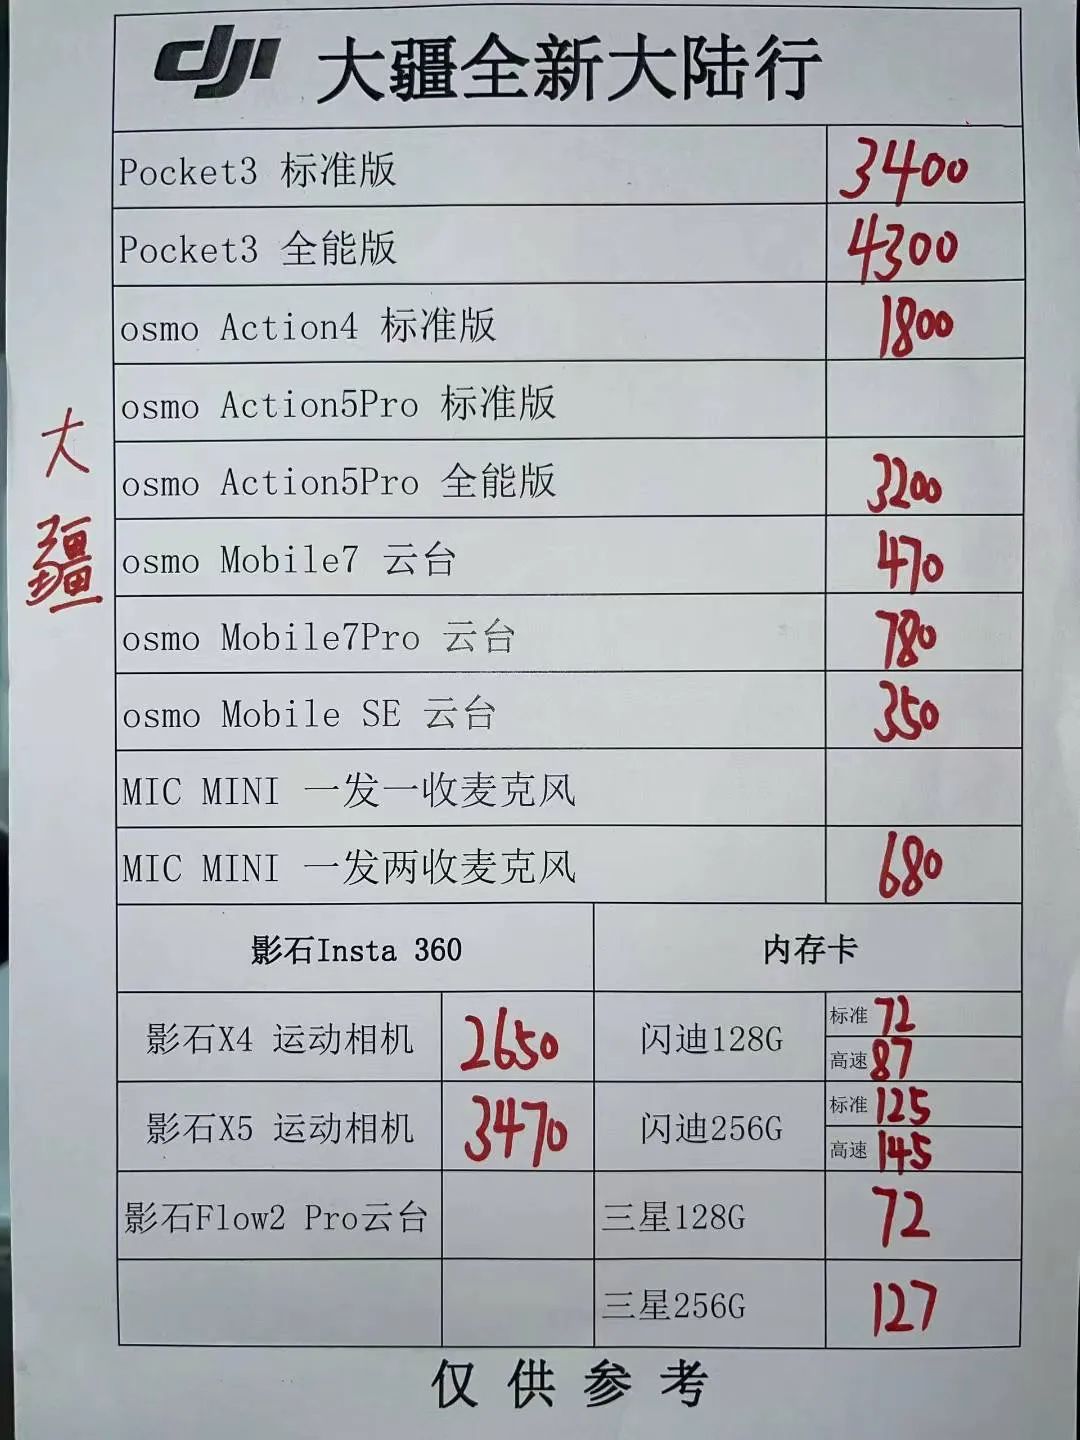 dji 大疆全新大陆行
Pocket3 标准版 3400
Pocket3 全能版 4300
osmo Action4 标准版 1800
osmo Action5Pro 标准版
osmo Action5Pro 全能版 3200
osmo Mobile7 云台 470
osmo Mobile7Pro 云台 780
osmo Mobile SE 云台 350
MIC MINI 一发一收麦克风
MIC MINI 一发两收麦克风 680
大疆
影石Insta 360 内存卡
影石X4 运动相机 2650 闪迪128G 标准 72
高速 87
影石X5 运动相机 3470 闪迪256G 标准 125
高速 145
影石Flow2 Pro云台 三星128G 72
三星256G 127
仅供参考